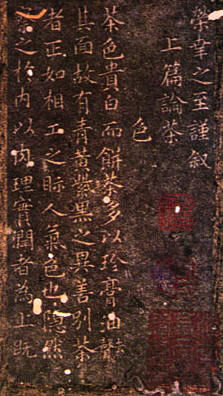 榮幸之至謹叙
上篇論茶
色
茶色貴白而餅茶多以珍膏油去聲
其面故有青黃紫黑之異善別茶
者正如相工之眎人氣色也隱然
之扵内以肉理實潤者為上既